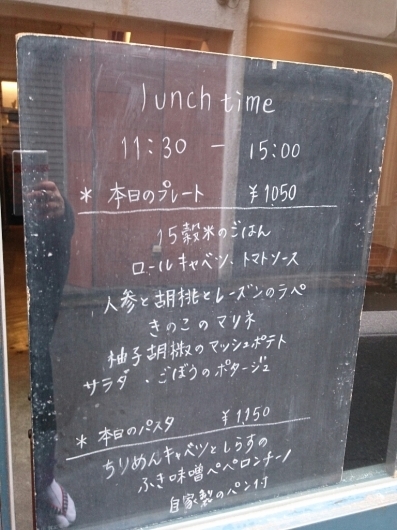 lunch time
11:30 - 15:00
* 本日のプレート ¥1050
15穀米のごはん
ロールキャベツ、トマトソース
人参と胡桃とレーズンのラペ
きのこのマリネ
柚子胡椒のマッシュポテト
サラダ、ごぼうのポタージュ
* 本日のパスタ ¥1,150
ちりめんキャベツとしらすの
ふき味噌ペペロンチーノ
自家製のパン付